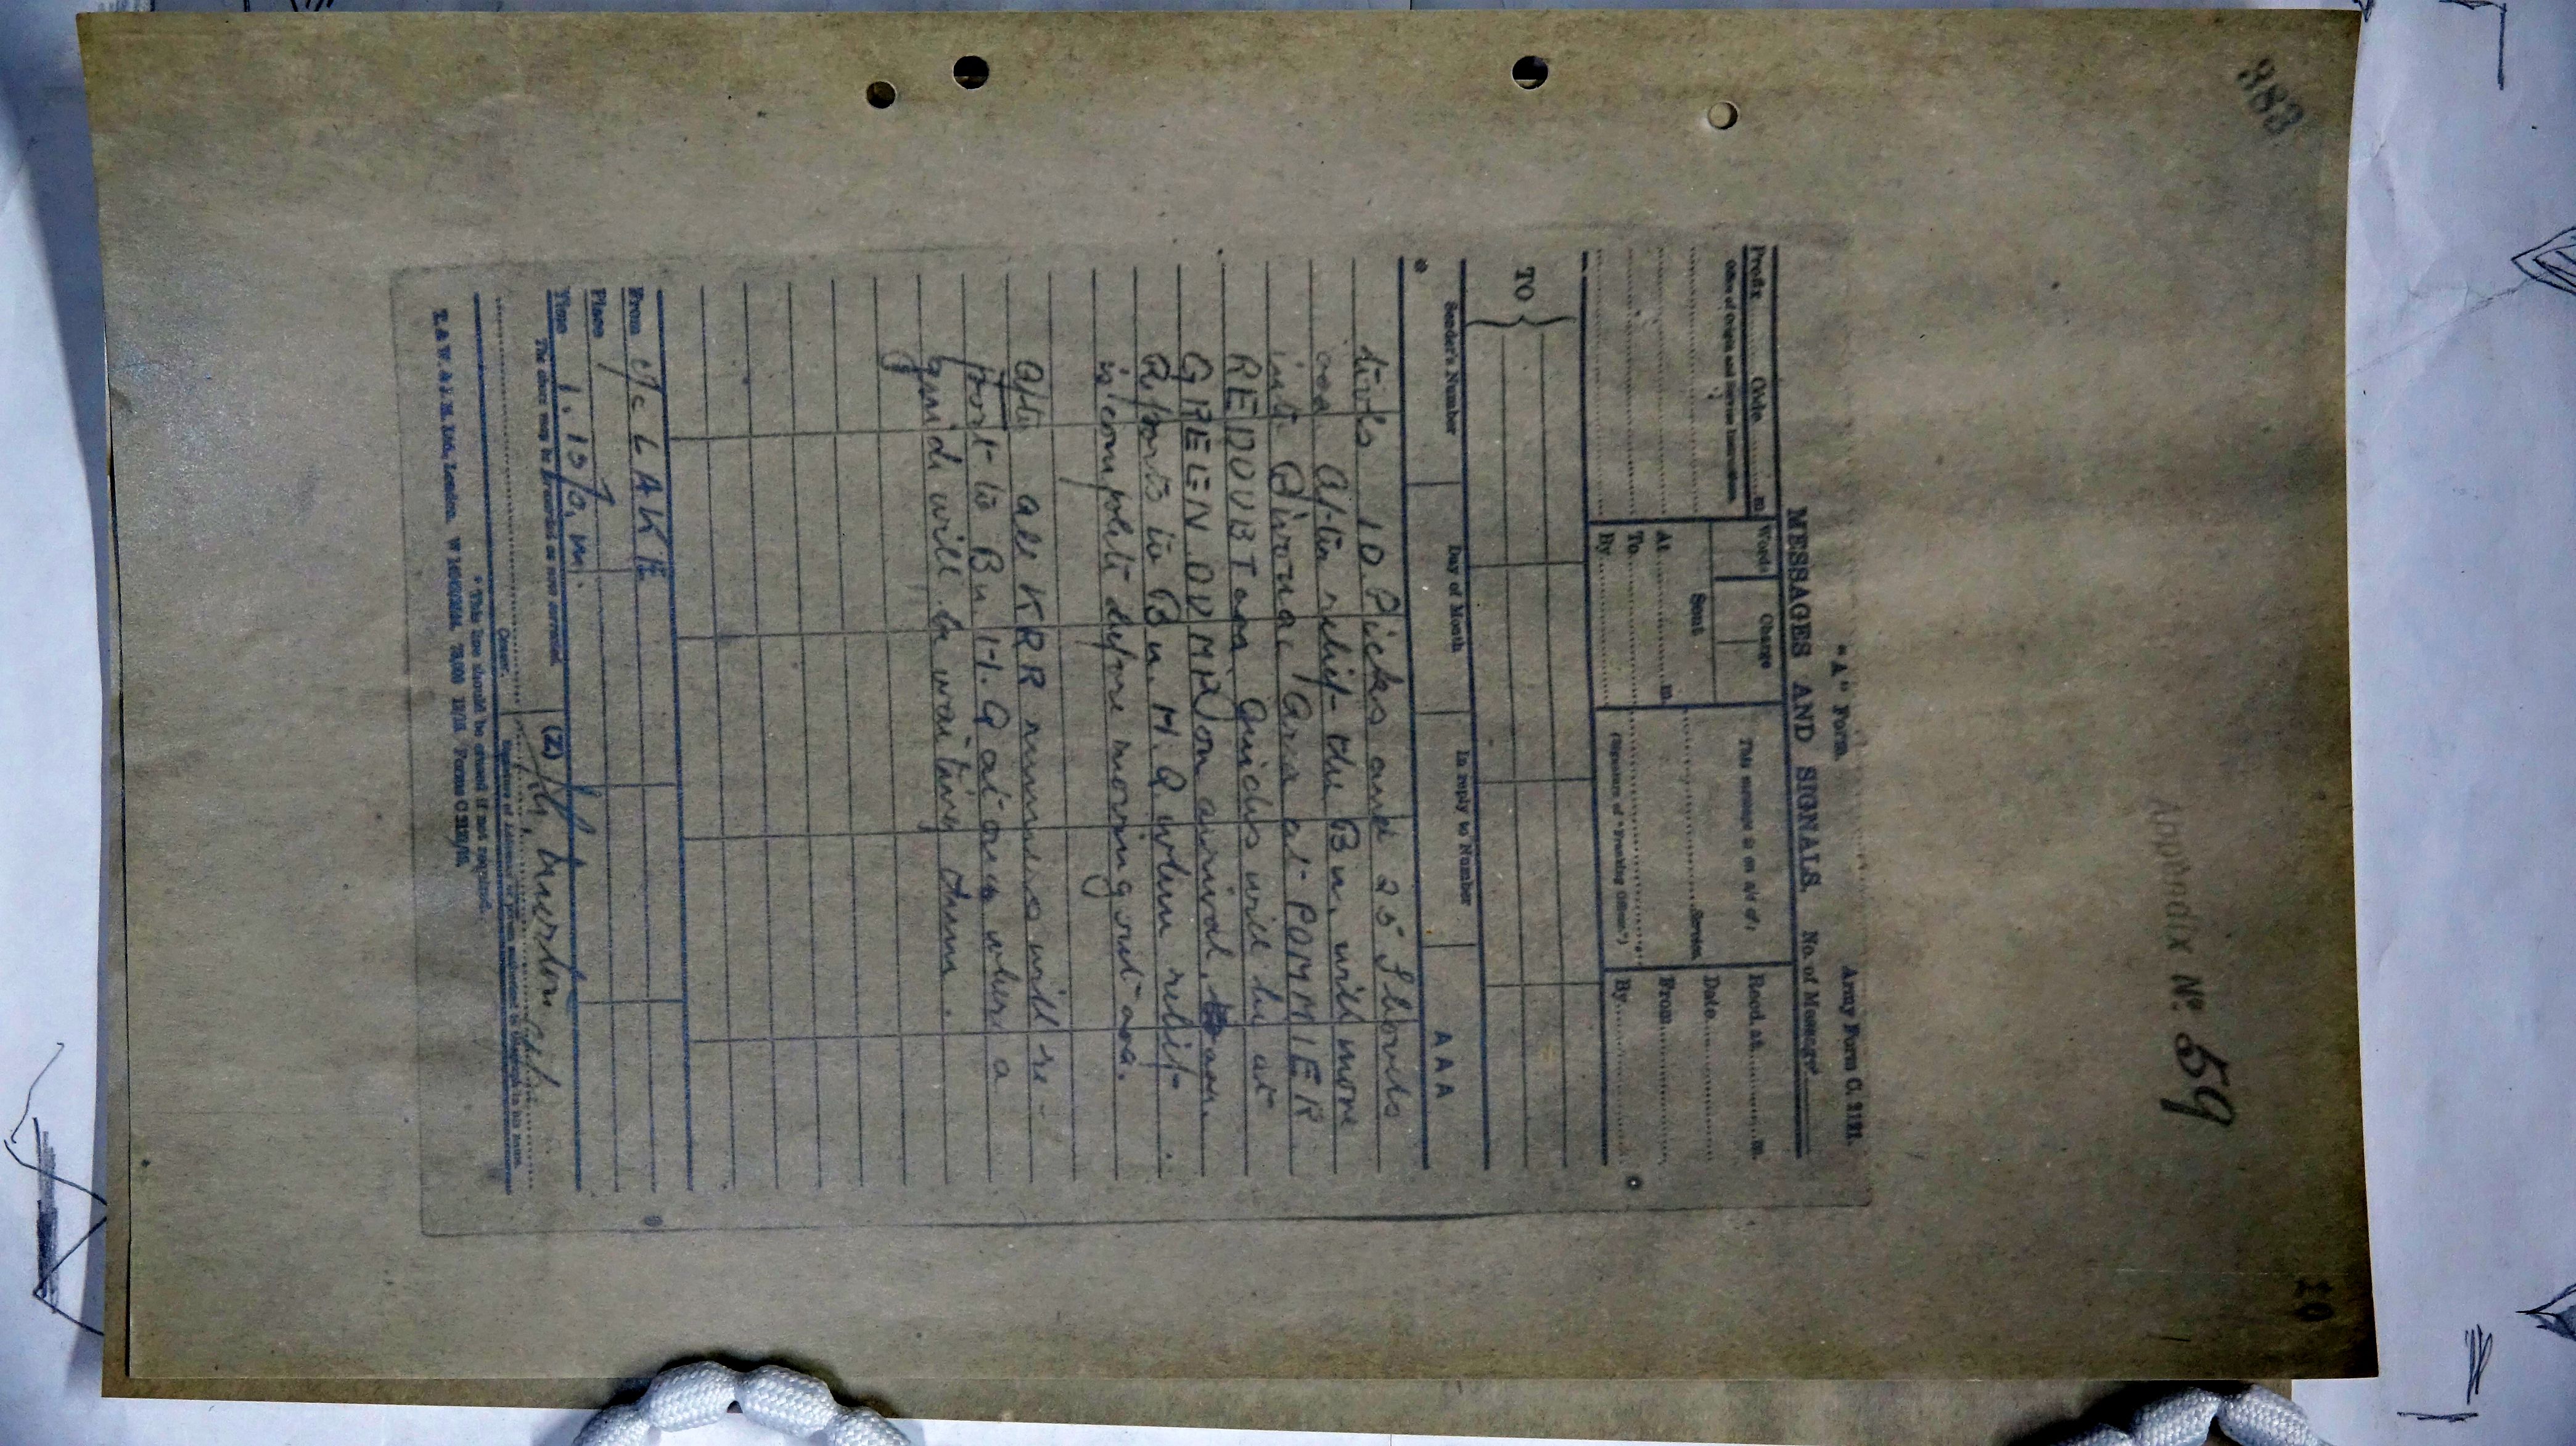 383
Appendix No. 59
10
"A" Form.
Army Form C. 2121.
MESSAGES AND SIGNALS.
No. of Message
Prefix Code m.
Office of Origin and Service Instructions.
Words
Charge
Sent
At m.
To
By
This message is on a/c of:
Service
(Signature of "Franking Officer")
Recd. at m.
Date
From
By
TO
Sender's Number
Day of Month
In reply to Number
A A A
10 Picks and 25 Shovels
aaa After relief the Bn. will move
into Bivouac Area at POMMIER
REDOUBT aaa Guides will be at
on arrival. aaa
Reports to Bn. H.Q when relief
is complete before moving out aaa.
all KRR runners will re-
port to Bn H.Q at once where a
guide will be waiting them.
From LAKE
Place
Time 1.15 p.m.
The above may be forwarded as now corrected.
(Z)
Censor.
Signature of Addressor or person authorised to telegraph in his name.
* This line should be erased if not required.
Ltd., London. Forms C 2121/15.